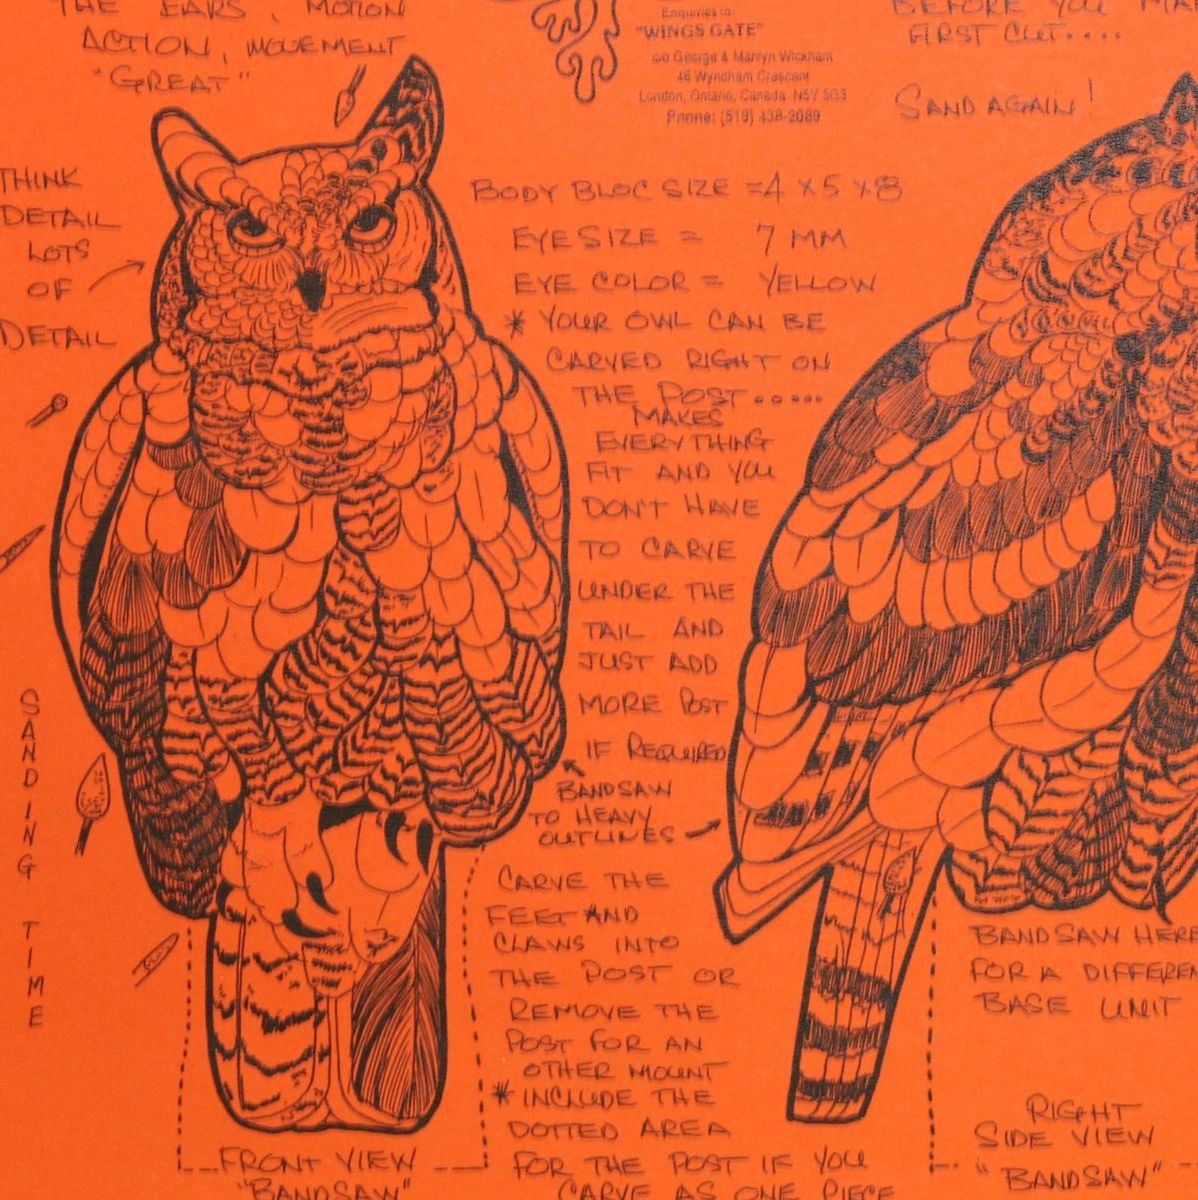 THE EARS, MOTION
ACTION, MOVEMENT
"GREAT"
Enquiries to:
"WINGS GATE"
c/o George & Marilyn Wickham
46 Wyndham Crescent
London, Ontario, Canada N5Y 5G3
Phone: (519) 438-2089
BEFORE YOU MA
FIRST CUT....
SAND AGAIN!
THINK
DETAIL
LOTS
OF
DETAIL
BODY BLOC SIZE = 4 X 5 X 8
EYE SIZE = 7 MM
EYE COLOR = YELLOW
* YOUR OWL CAN BE
CARVED RIGHT ON
THE POST.....
MAKES
EVERYTHING
FIT AND YOU
DON'T HAVE
TO CARVE
UNDER THE
TAIL AND
JUST ADD
MORE POST
IF REQUIRED
BANDSAW
TO HEAVY
OUTLINES
SANDING TIME
CARVE THE
FEET AND
CLAWS INTO
THE POST OR
REMOVE THE
POST FOR AN
OTHER MOUNT
* INCLUDE THE
DOTTED AREA
FOR THE POST IF YOU
CARVE AS ONE PIECE
FRONT VIEW
"BANDSAW"
BANDSAW HERE
FOR A DIFFEREN
BASE UNIT
RIGHT
SIDE VIEW
"BANDSAW"